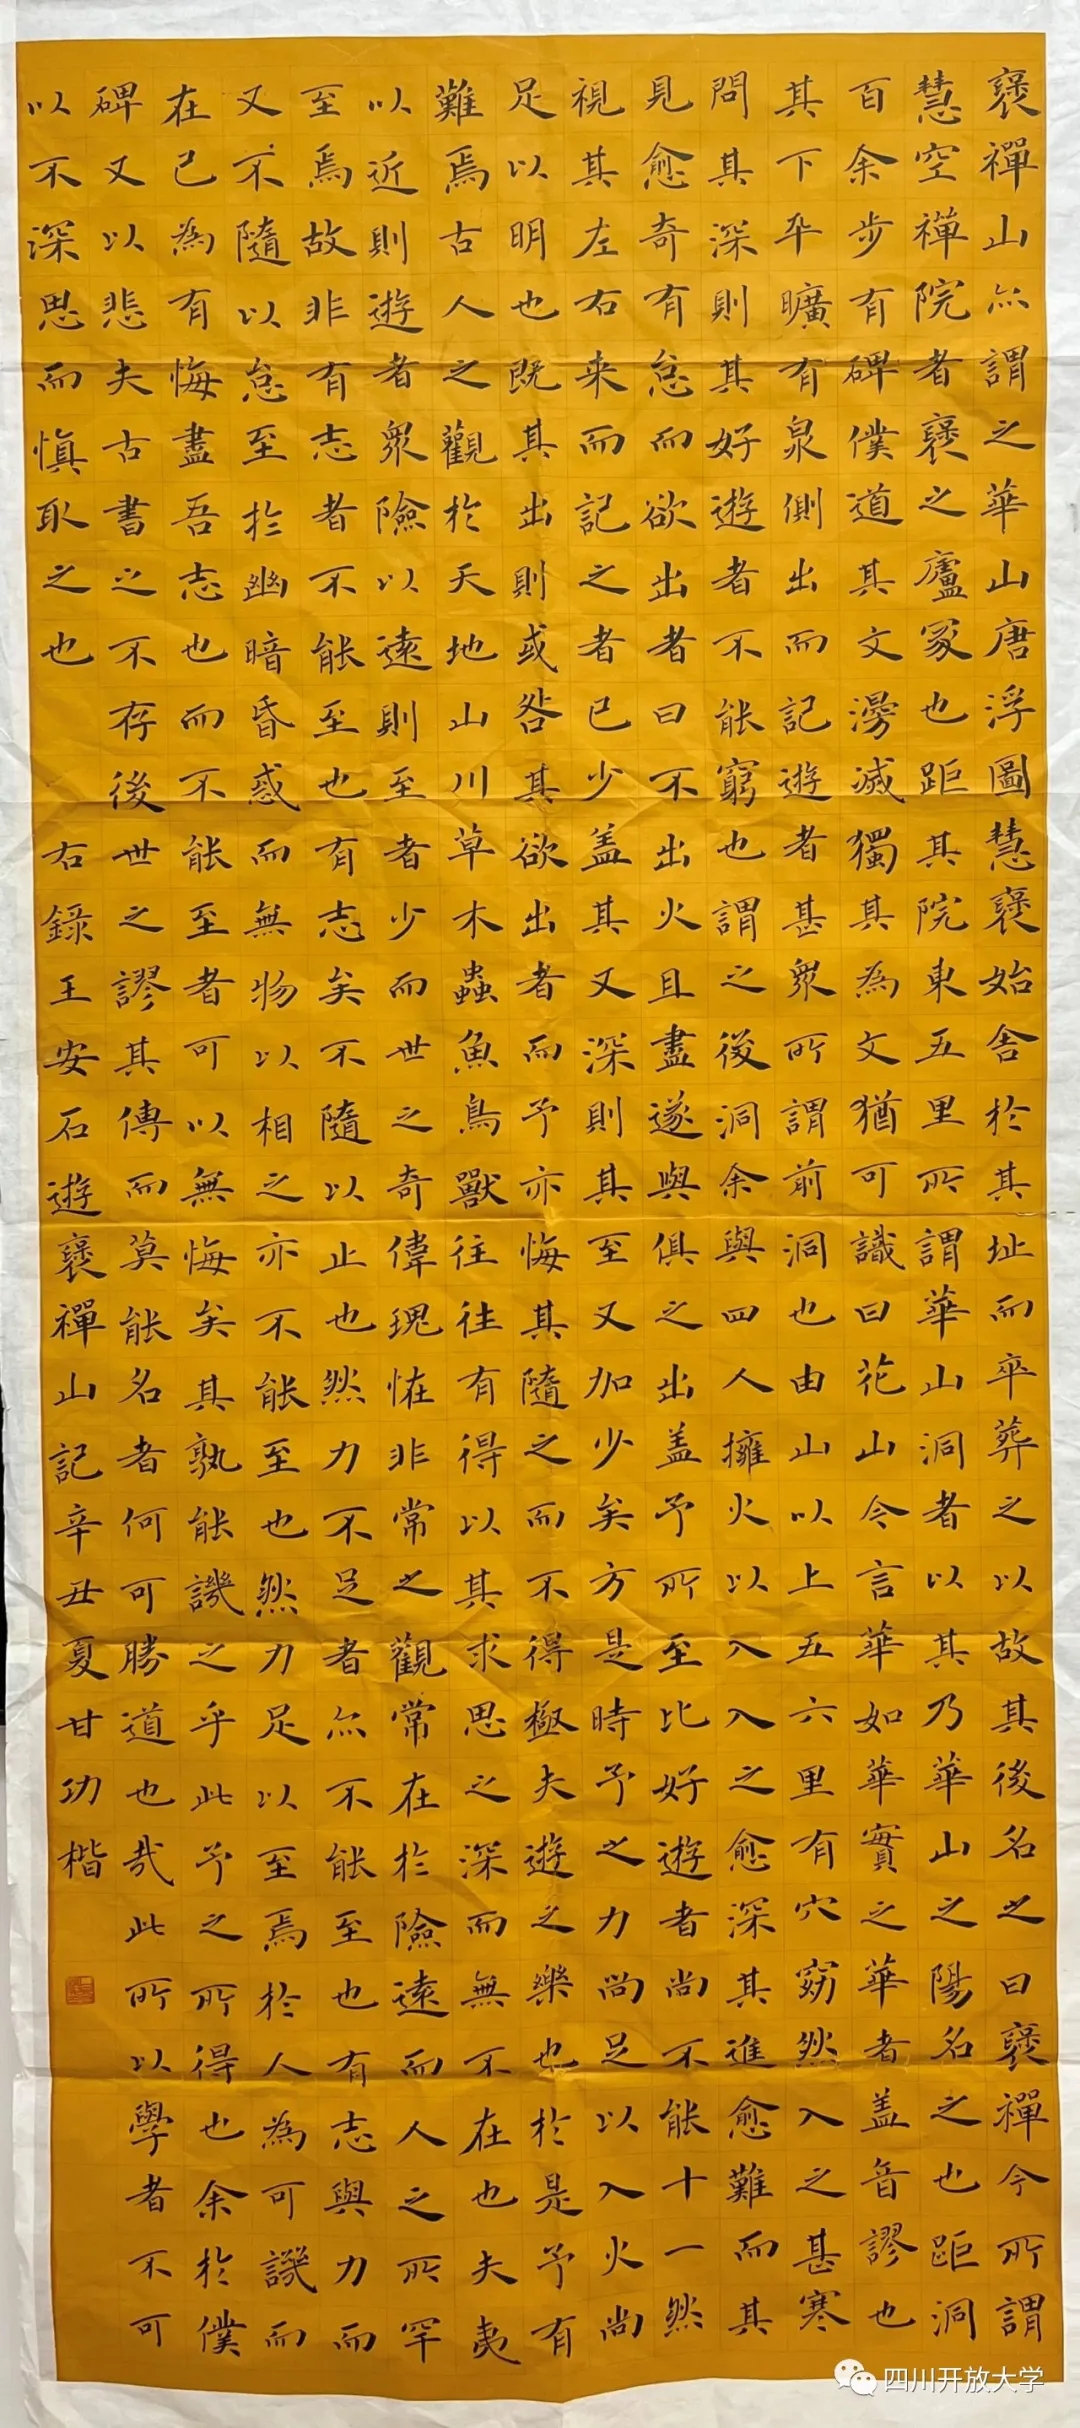 褒禪山亦謂之華山唐浮圖慧褒始舍於其址而卒葬之以故其後名之曰褒禪今所謂
慧空禪院者褒之廬冢也距其院東五里所謂華山洞者以其乃華山之陽名之也距洞
百余步有碑僕道其文漫滅獨其為文猶可識曰花山今言華如華實之華者盖音謬也
其下平曠有泉側出而記遊者甚衆所謂前洞也由山以上五六里有穴窈然入之甚寒
問其深則其好遊者不能窮也謂之後洞余與四人擁火以入入之愈深其進愈難而其
見愈奇有怠而欲出者曰不出火且盡遂與俱之出盖予所至比好遊者尚不能十一然
視其左右来而記之者已少盖其又深則其至又加少矣方是時予之力尚足以入火尚
足以明也既其出則或咎其欲出者而予亦悔其隨之而不得極夫遊之樂也於是予有
難焉古人之觀於天地山川草木蟲魚鳥獸往往有得以其求思之深而無不在也夫夷
以近則遊者衆險以遠則至者少而世之奇偉瑰怪非常之觀常在於險遠而人之所罕
至焉故非有志者不能至也有志矣不隨以止也然力不足者亦不能至也有志與力而
又不隨以怠至於幽暗昏惑而無物以相之亦不能至也然力足以至焉於人為可譏而
在己為有悔盡吾志也而不能至者可以無悔矣其孰能譏之乎此予之所得也余於僕
碑又以悲夫古書之不存後世之謬其傳而莫能名者何可勝道也哉此所以學者不可
以不深思而慎取之也 右錄王安石遊褒禪山記辛丑夏甘功楷
四川开放大学